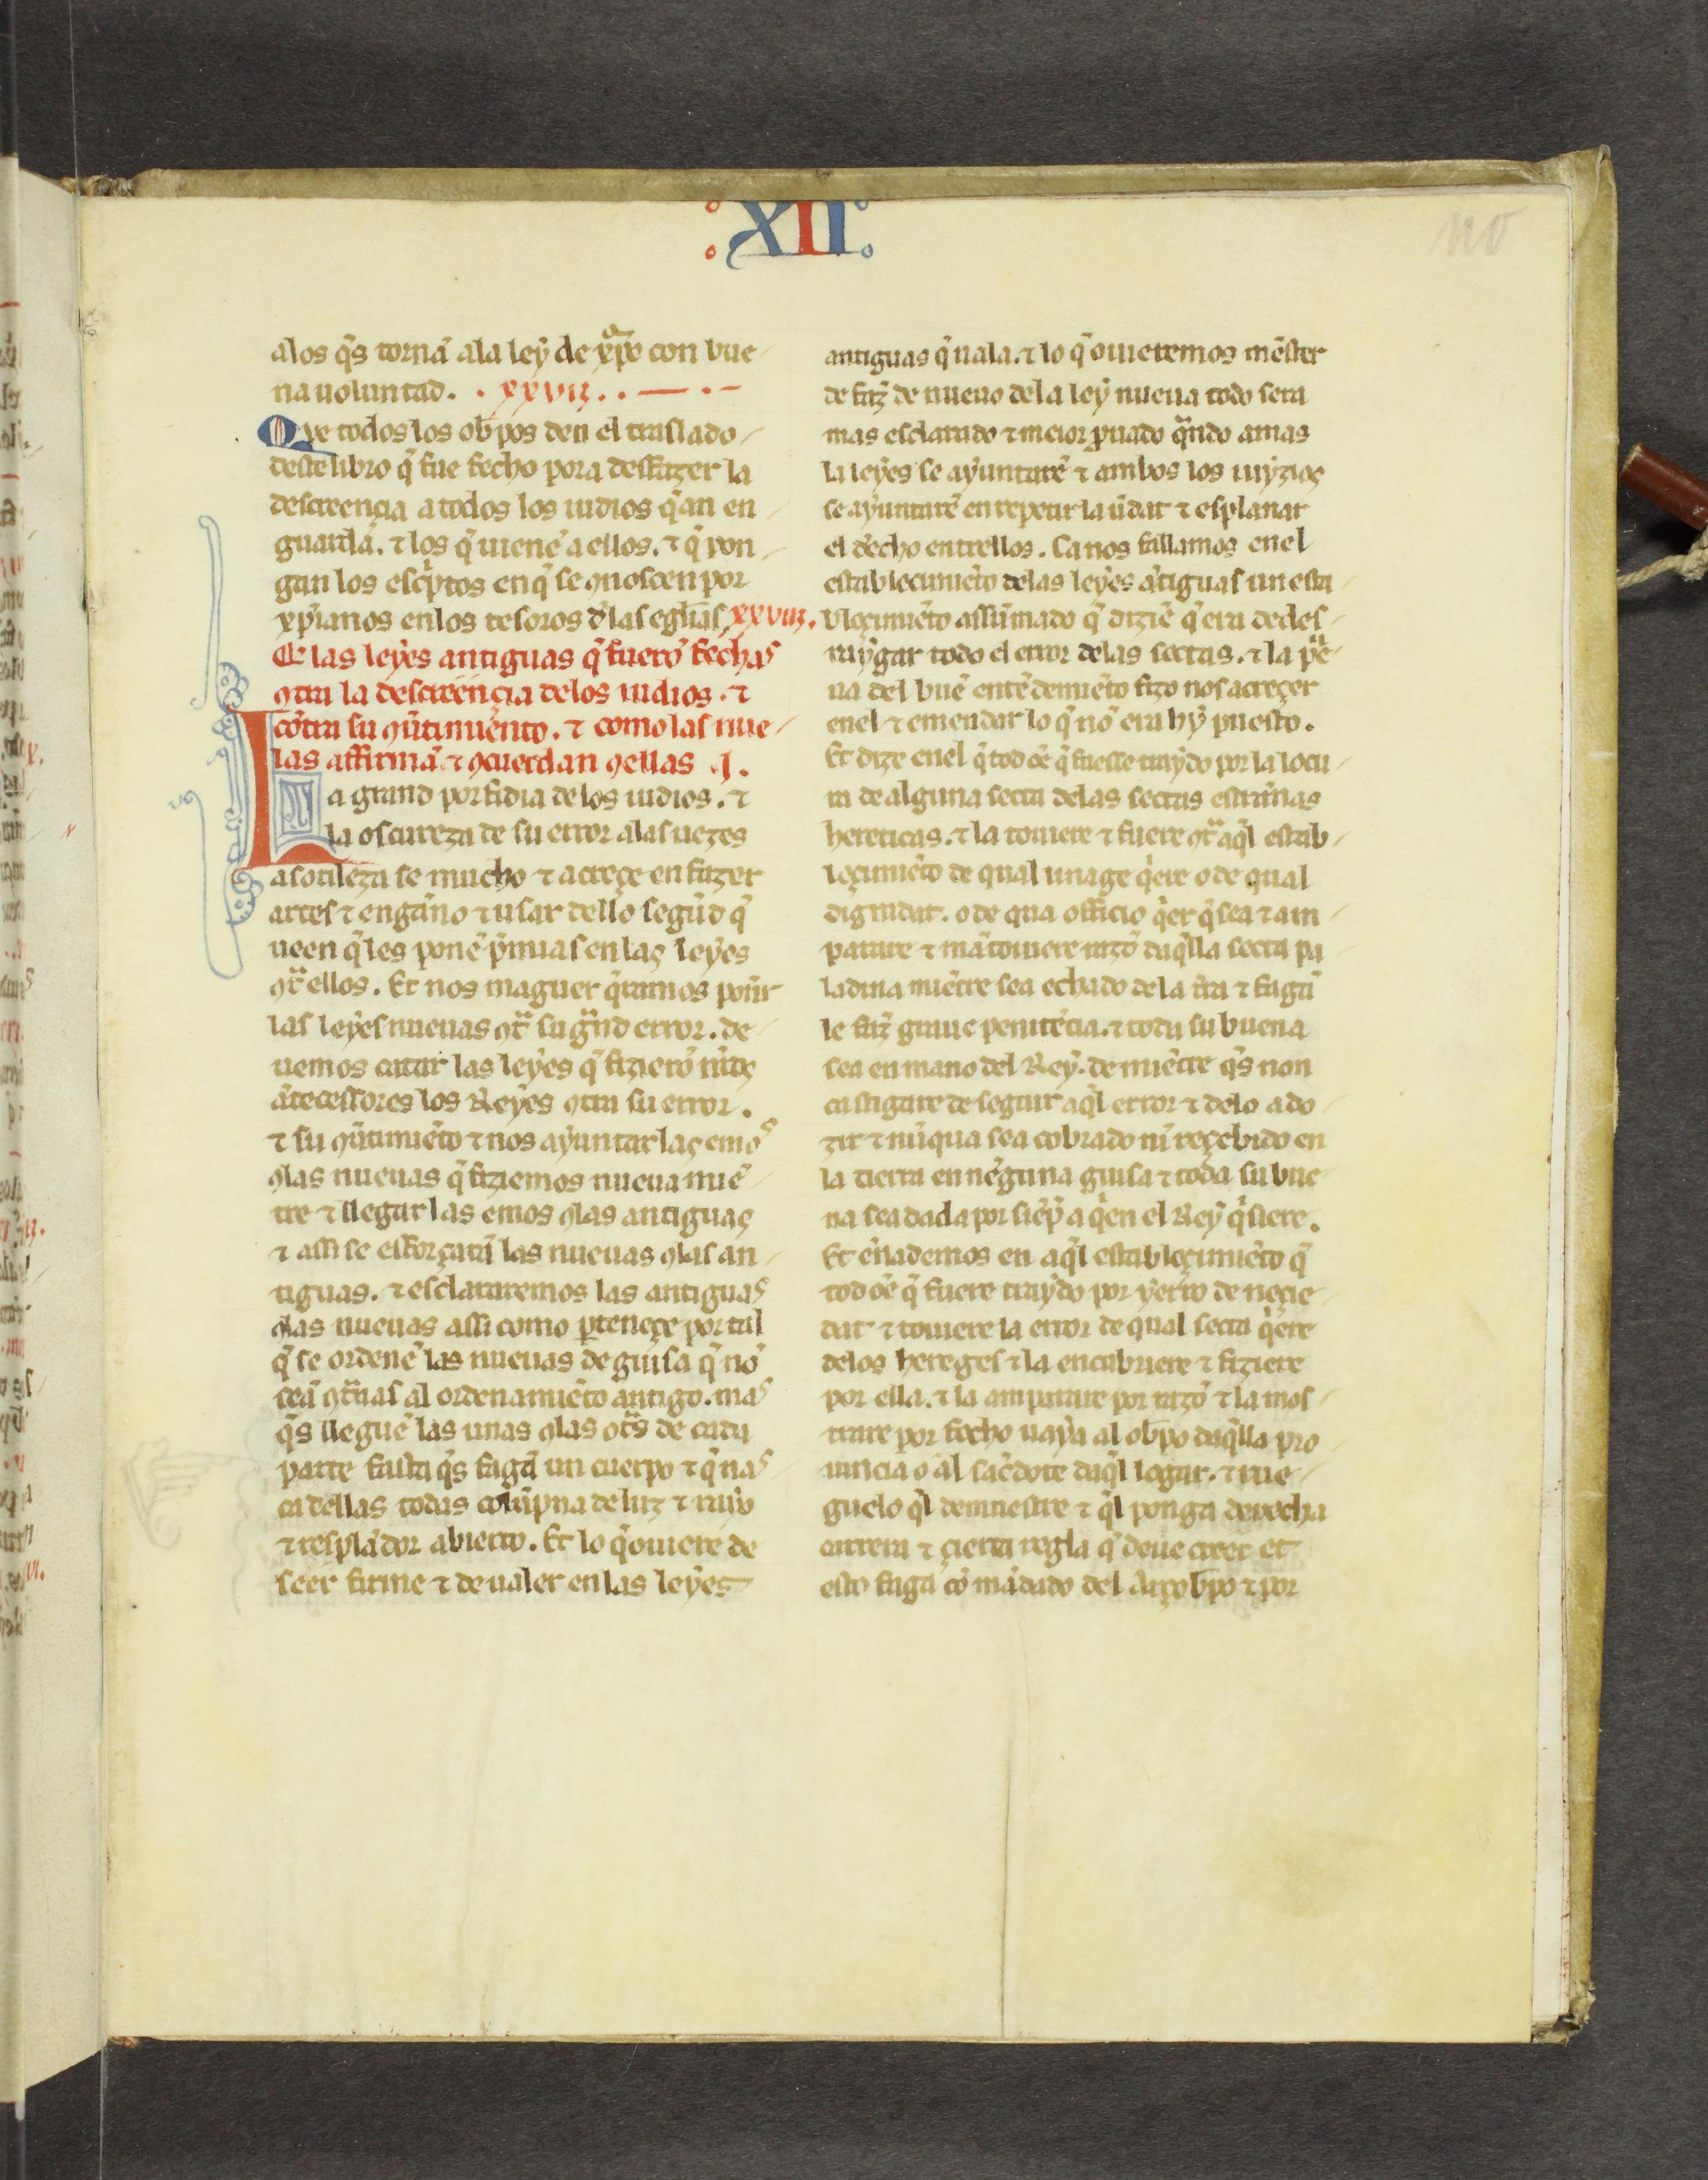 XII
110
alos q̃s tornã ala leẏ de xp̃o con bue
na uoluntad. xxvij.
Que todos los ob̃pos den el traslado
deste libro q̃ fue fecho pora desfazer la
descreençia a todos los iudios q̃ an en
guarda. ⁊ los q̃ uienẽ a ellos. ⁊ q̃ pon
gan los esc̃ptos en q̃ se ꝯnoscen por
xp̃ianos enlos tesoros d̃las egl̃ias. xxviij.
De las leẏes antiguas q̃ fuerõ fechas
ꝯtra la descreençia delos iudios. ⁊
cõtra su ꝯ̃timiento. ⁊ como las nue
uas affirmã ⁊ ꝯcuerdan ꝯellas .j.
La grand porfidia de los iudios. ⁊
la oscureza de su error alas uezes
asotileza se mucho ⁊ acreçe en fazer
artes ⁊ engãno ⁊ usar dello segũd q̃
ueen q̃ les ponẽ p̃muas en las leẏes
ꝯt̃ ellos. Et nos maguer q̃ramos poñr
las leẏes nueuas ꝯt̃ su g̃nd error. de
uemos catar las leẏes q̃ fizierõ nr̃os
ãtecessores los Reẏes ꝯtra su error.
⁊ su ꝯ̃timiẽto ⁊ nos aẏuntar las emos
ꝯlas nueuas q̃ fiziemos nueua miẽ
tre ⁊ llegar las emos ꝯlas antiguas
⁊ assi se esforçarã las nueuas ꝯlas an
tiguas. ⁊ esclararemos las antiguas
ꝯlas nueuas assi como ꝑteneçe por tal
q̃ se ordenẽ las nueuas de guisa q̃ nõ
seã ꝯt̃rias al ordenamiẽto antigo. mas
q̃s lleguẽ las unas ꝯlas ot̃s de cada
parte fasta q̃s fagã un cuerpo ⁊ q̃ nas
ca dellas todas colũpna de luz ⁊ rayo
⁊ resplãdor abierto. Et lo q̃ ouiere de
seer firme ⁊ de ualer en las leẏes
antiguas q̃ uala. ⁊ lo q̃ ouieremos mẽster
de faz̃ de nueuo dela leẏ nueua todo sera
mas esclarado ⁊ meior ꝓuado q̃ndo amas
la leẏes se aẏuntarẽ ⁊ ambos los iuẏzios
se aẏuntarẽ en repetir la ũdat ⁊ esplanar
el d̃echo entrellos. Ca nos fallamos enel
establecimiẽto delas leẏes ãtiguas un esta
bleçimiẽto assũmado q̃ diziẽ q̃ era de des
raẏgar todo el error delas sectas. ⁊ la pẽ
na del buẽ entẽdemiẽto fizo nos acreçer
enel ⁊ emendar lo q̃ nõ era hẏ puesto.
Et dize enel q̃ tod õe q̃ fuesse traẏdo por la locu
ra de alguna secta delas sectas estrãnas
hereticas. ⁊ la touiere ⁊ fuere ꝯt̃ aq̃l estab
leçimiẽto de qual linage q̃ere o de qual
dignidat. o de qua officio q̃er q̃ sea ⁊ am
parare ⁊ mãtouiere razõ daq̃lla secta pa
ladina miẽtre sea echado dela tr̃ra ⁊ fagã
le faz̃ graue penitẽcia. ⁊ toda su buena
sea en mano del Reẏ. de miẽtre q̃s non
castigare de seguir aq̃l error ⁊ delo ado
zir ⁊ nũqua sea cobrado nĩ reçebido en
la tierra en nẽguna guisa ⁊ toda su bue
na sea dada por siẽp̃ a q̃en el Reẏ q̃siere.
Et ẽnademos en aq̃l estableçimiẽto q̃
tod õe q̃ fuere traẏdo por ẏerro de neçie
dat ⁊ touiere la error de qual secta q̃ere
delos hereges ⁊ la encubriere ⁊ fiziere
por ella. ⁊ la amparare por razõ ⁊ la mos
trare por fecho uaẏa al ob̃po daq̃lla pro
uincia o al sac̃dote daq̃l logar. ⁊ rue
guelo q̃l demuestre ⁊ q̃l ponga derecha
carrera ⁊ çierta regla q̃ deue creer et
esto faga cõ mãdado del Arçob̃po ⁊ por